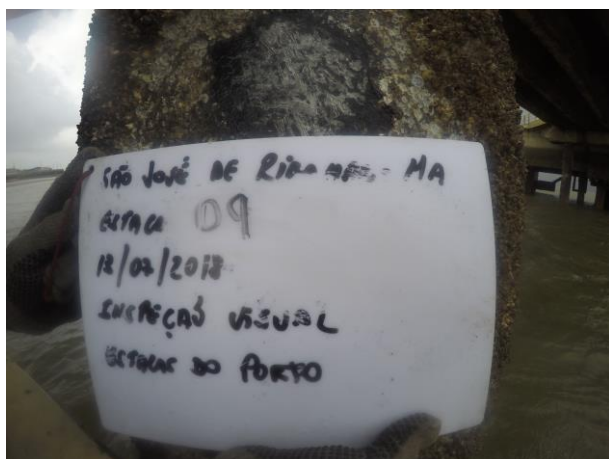 SÃO JOSÉ DE RIBAMAR - MA
ESTACA 09
INSPEÇÃO VISUAL
ESTACAS DO PORTO